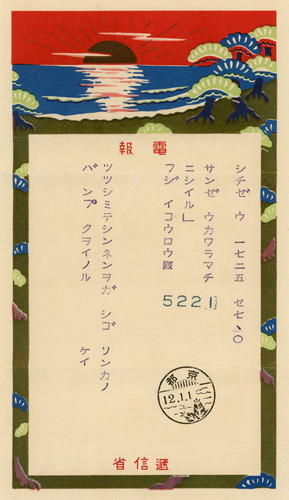 電報
シチゼ ウ 一七二五 セ七、〇
サンゼ ウカワラマチ
ニシイル」
フジ イコウロウ殿
522.1
ツツシミテシンネンヲガ シゴ ソンカノ
バ ンプ クヲイノル
ケイ
京都
12.1.1
逓信省